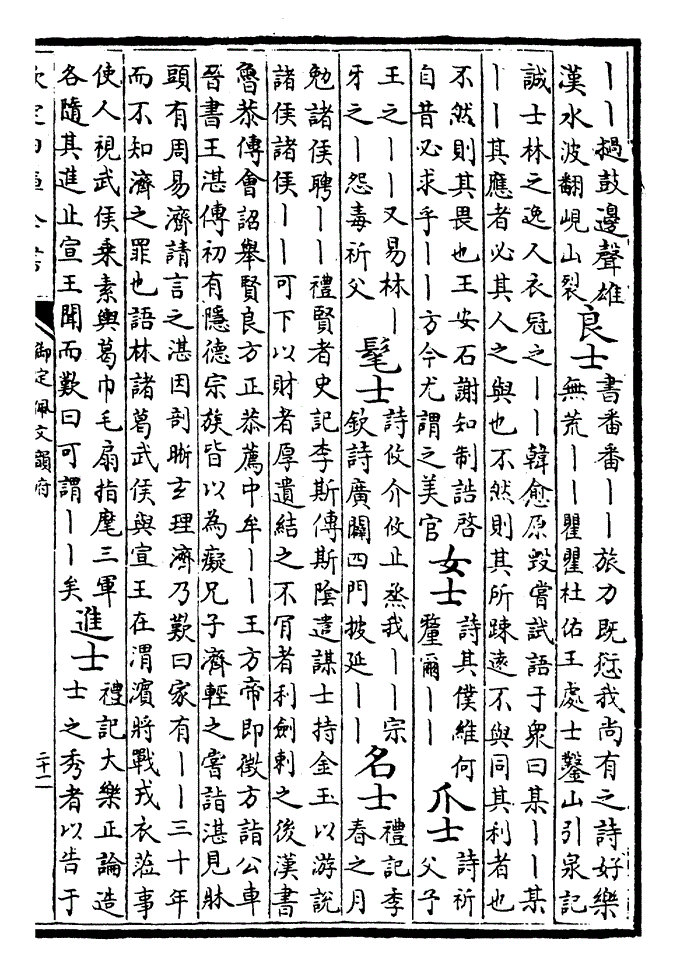 ｜｜撾鼓邊聲雄
漢水波翻峴山裂
良士
書番番｜｜旅力既愆我尚有之詩好樂
無荒｜｜瞿瞿杜佑王處士鑿山引泉記
誠士林之逸人衣冠之｜｜韓愈原毀嘗試語于衆曰某｜｜某
｜｜其應者必其人之與也不然則其所踈遠不與同其利者也
不然則其畏也王安石謝知制誥啓
自昔必求乎｜｜方今尤謂之美官
女士
詩其僕維何
釐爾｜｜
爪士
詩祈
父予
王之｜｜又易林｜
牙之｜｜怨毒祈父
髦士
詩攸介攸止烝我｜｜宗
欽詩廣闢四門披延｜｜
名士
禮記季
春之月
勉諸侯聘｜｜禮賢者史記李斯傳斯陰遣謀士持金玉以游說
諸侯諸侯｜｜可下以財者厚遺結之不肎者利劍刺之後漢書
魯恭傳會詔舉賢良方正恭薦中牟｜｜王方帝即徴方詣公車
晉書王湛傳初有隱德宗族皆以為癡兄子濟輕之嘗詣湛見牀
頭有周易濟請言之湛因剖晰玄理濟乃歎曰家有｜｜三十年
而不知濟之罪也語林諸葛武侯與宣王在渭濱將戰戎衣蒞事
使人視武侯乗素輿葛巾毛扇指麾三軍
各隨其進止宣王聞而歎曰可謂｜｜矣
進士
禮記大樂正論造
士之秀者以告于
欽定四庫全書
御定佩文韻府
二十一